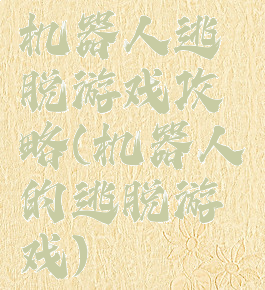 机器人逃
脱游戏攻
略(机器人
的逃脱游
戏)